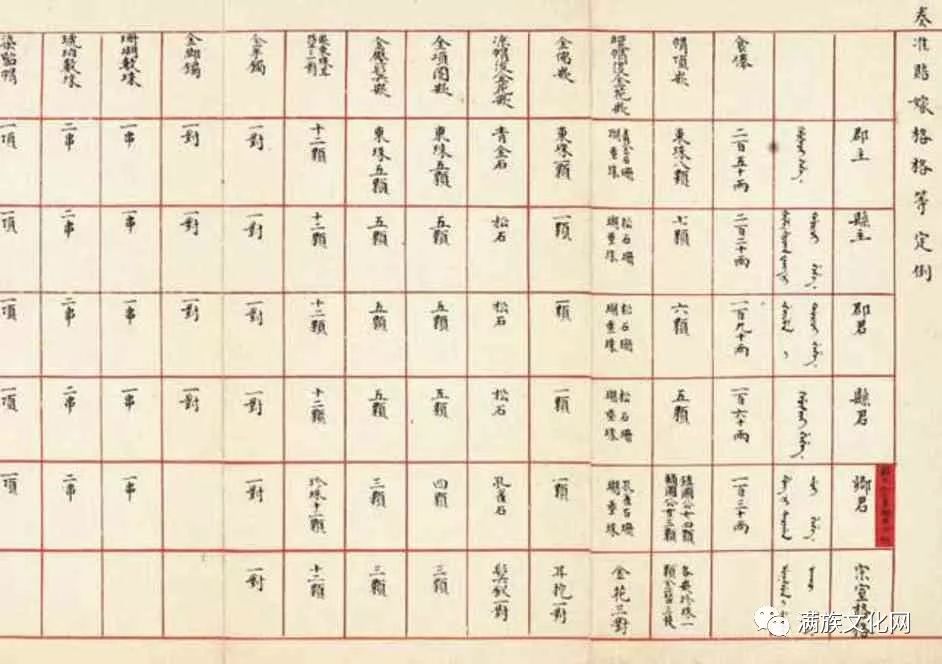 准賠嫁格格等定例
郡主
縣主
郡君
縣君
鄉君
宗室格格
食俸
二百五十兩
二百二十兩
一百九十兩
一百六十兩
一百三十兩
帽頂嵌
東珠八顆
七顆
六顆
五顆
鎮國公女四顆
輔國公女三顆
各嵌珍珠一
煖帽後金花嵌
青金石珊
瑚董珠
松石珊
瑚董珠
松石珊
瑚董珠
松石珊
瑚董珠
孔雀石珊
瑚董珠
金花三對
金佛嵌
東珠一顆
一顆
一顆
一顆
一顆
耳挖一對
涼帽後金花嵌
青金石
松石
松石
松石
孔雀石
鬂釵一對
金項圈嵌
東珠五顆
五顆
五顆
五顆
四顆
三顆
東珠五顆
五顆
五顆
五顆
三顆
三顆
十二顆
十二顆
十二顆
十二顆
珍珠十二顆
十二顆
金手鐲
一對
一對
一對
一對
一對
一對
金腳鐲
一對
一對
一對
一對
珊瑚數珠
一串
一串
一串
一串
一串
琥珀數珠
二串
二串
二串
二串
二串
染貂帽
一頂
一頂
一頂
一頂
一頂
满族文化网